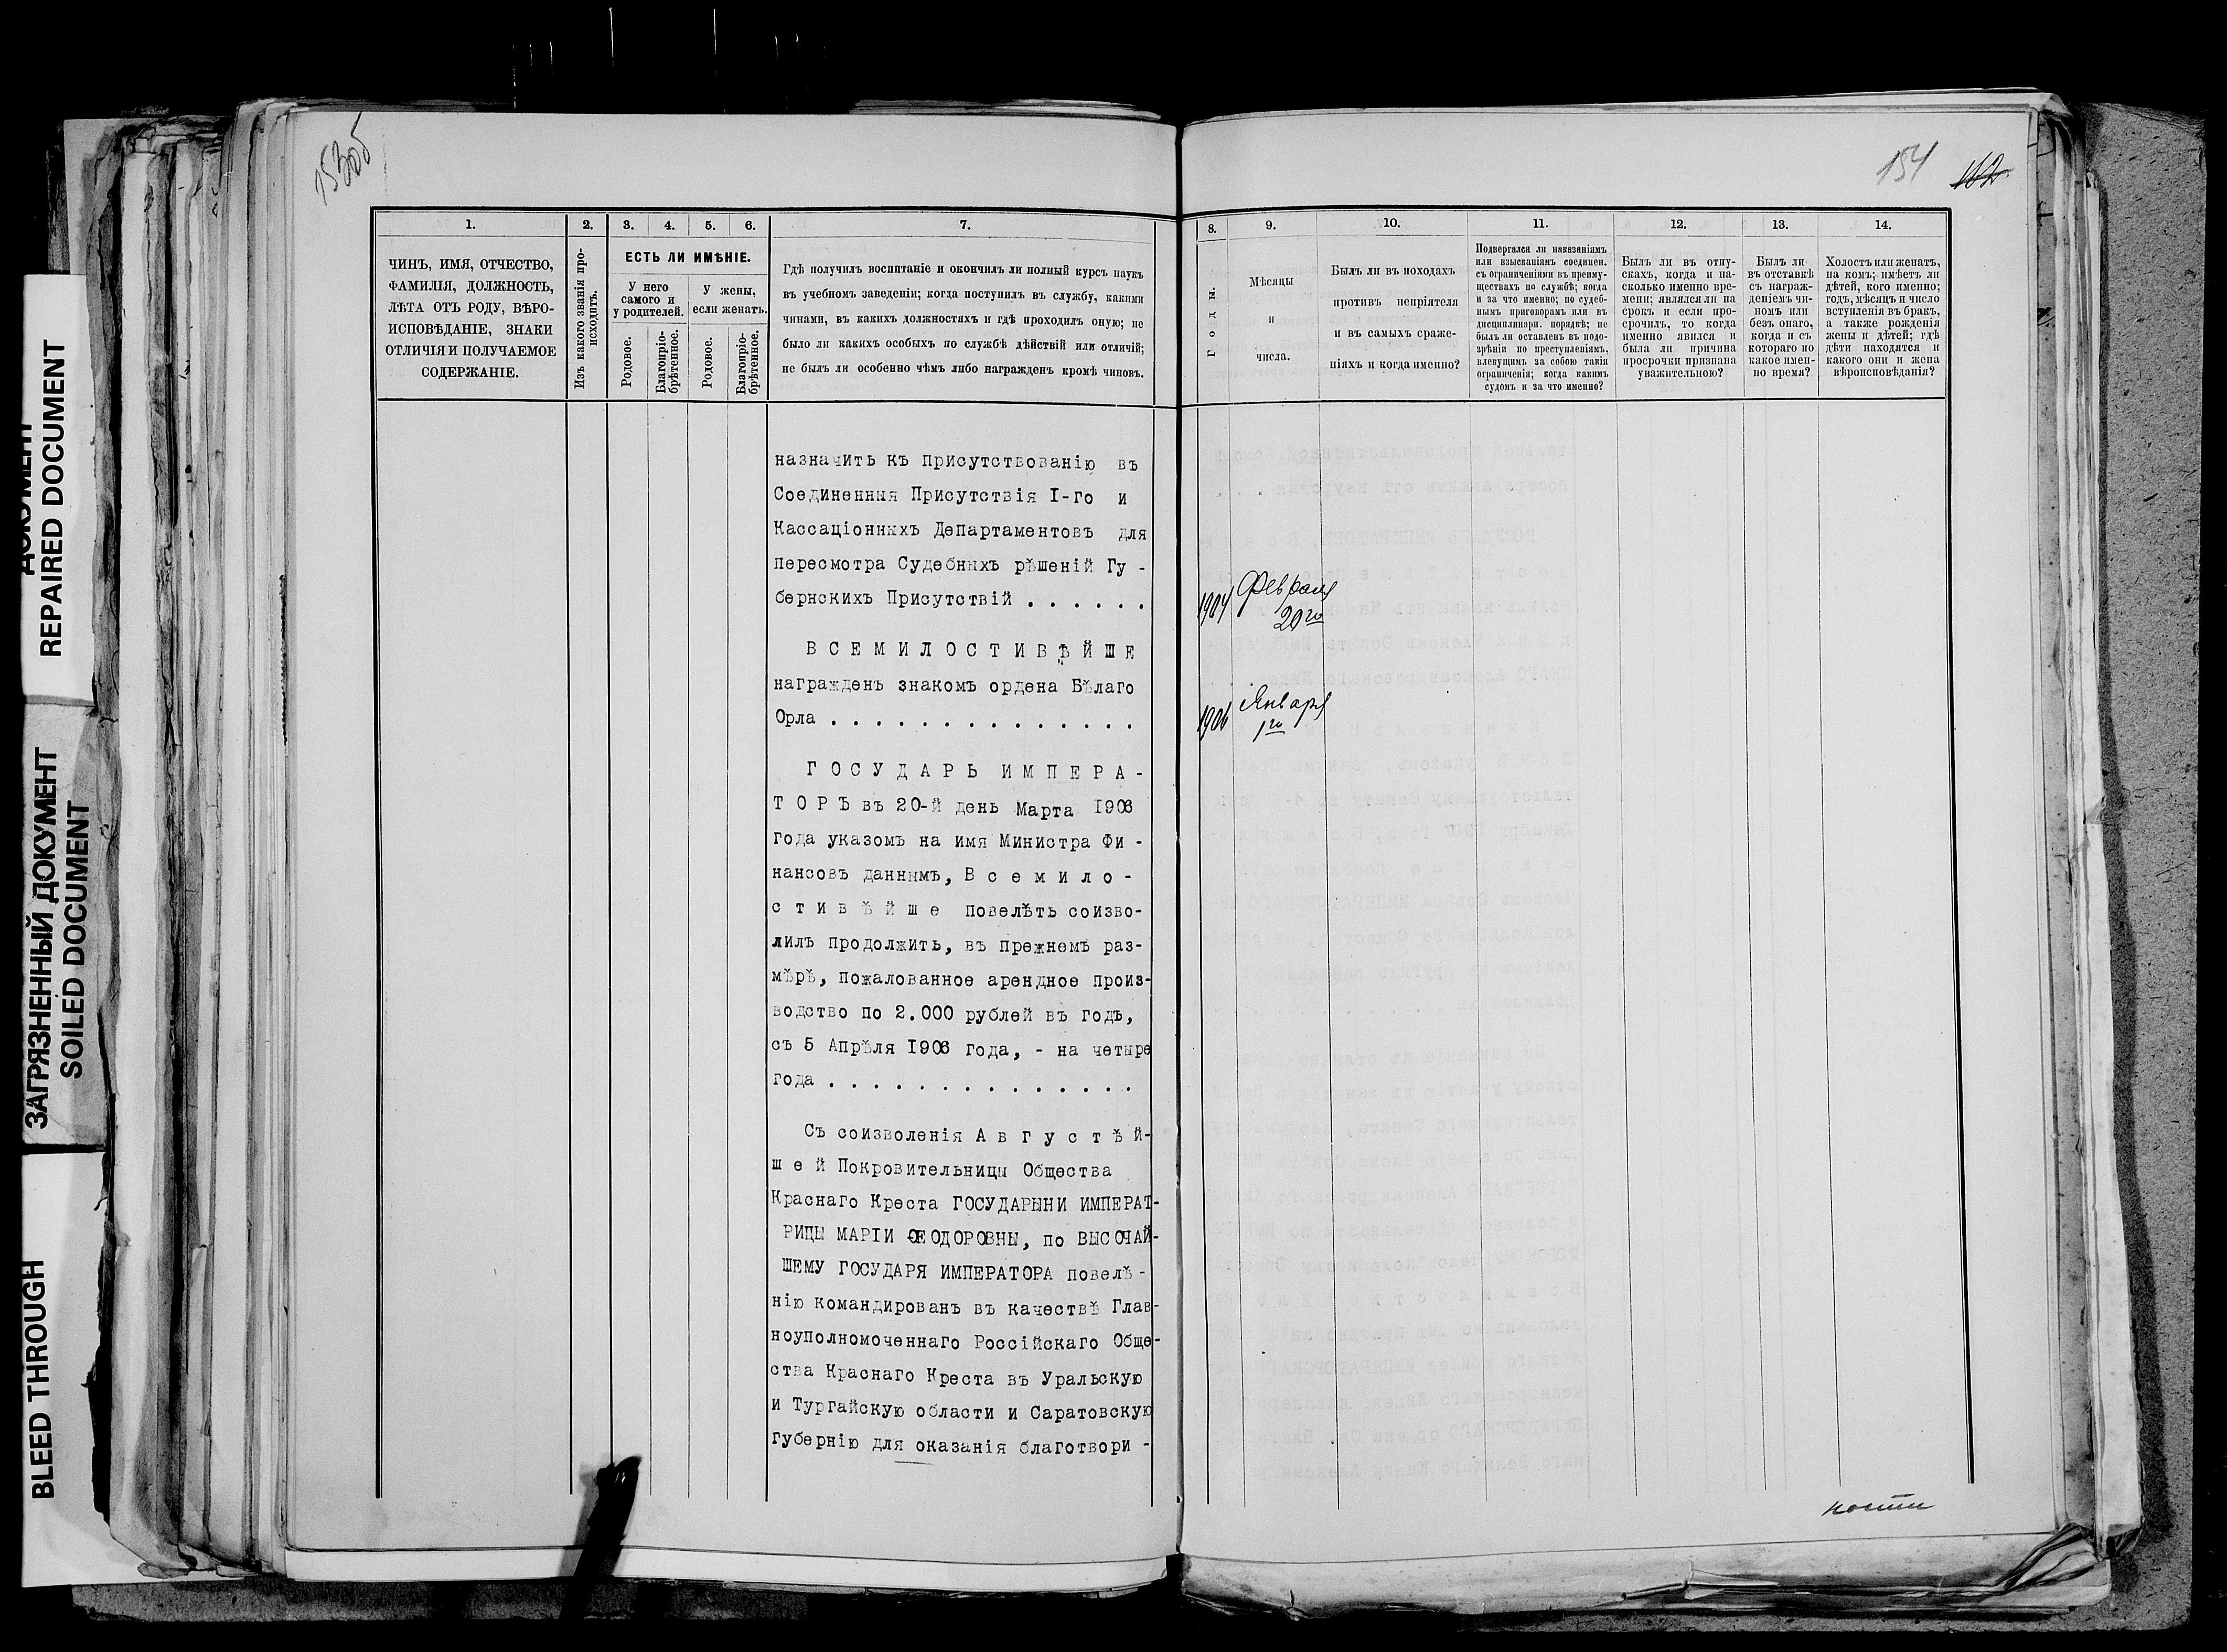 ДОКУМЕНТ
REPAIRED DOCUMENT
ЗАГРЯЗНЕННЫЙ ДОКУМЕНТ
SOILED DOCUMENT
BLEED THROUGH
153об
1.
ЧИНЪ, ИМЯ, ОТЧЕСТВО,
ФАМИЛІЯ, ДОЛЖНОСТЬ,
ЛѢТА ОТЪ РОДУ, ВѢРО-
ИСПОВѢДАНІЕ, ЗНАКИ
ОТЛИЧІЯ И ПОЛУЧАЕМОЕ
СОДЕРЖАНІЕ.
2.
Изъ какого званія про-
исходитъ.
3. 4. 5. 6.
ЕСТЬ ЛИ ИМѢНІЕ.
У него
самого и
у родителей.
У жены,
если женатъ.
Родовое.
Благопріо-
брѣтенное.
Родовое.
Благопріо-
брѣтенное.
7.
Гдѣ получилъ воспитаніе и окончилъ ли полный курсъ наукъ
въ учебномъ заведеніи; когда поступилъ въ службу, какими
чинами, въ какихъ должностяхъ и гдѣ проходилъ оную; не
было ли какихъ особыхъ по службѣ дѣйствій или отличій;
не былъ ли особенно чѣмъ либо награжденъ кромѣ чиновъ.
назначить къ присутствованію въ
Соединенныя Присутствія I-го и
Кассаціонныхъ Департаментовъ для
пересмотра Судебныхъ рѣшеній Гу -
бернскихъ Присутствій . . . . . .
В С Е М И Л О С Т И В Ѣ Й Ш Е
награжденъ знакомъ ордена Бѣлаго
Орла . . . . . . . . . . . . . .
Г О С У Д А Р Ь И М П Е Р А -
Т О Р Ъ въ 20-й день Марта 1906
года указомъ на имя Министра Фи -
нансовъ даннымъ, В с е м и л о -
с т и в ѣ й ш е повелѣть соизво-
лилъ продолжить, въ прежнемъ раз-
мѣрѣ, пожалованное арендное произ-
водство по 2.000 рублей въ годъ,
съ 5 Апрѣля 1906 года, - на четыре
года . . . . . . . . . . . . . .
Съ соизволенія А в г у с т ѣ й-
ш е й Покровительницы Общества
Краснаго Креста ГОСУДАРЫНИ ИМПЕРАТ-
РИЦЫ МАРІИ ѲЕОДОРОВНЫ, по ВЫСОЧАЙ-
ШЕМУ ГОСУДАРЯ ИМПЕРАТОРА повелѣ -
нію командированъ въ качествѣ Глав-
ноуполномоченнаго Россійскаго Обще-
ства Краснаго Креста въ Уральскую
и Тургайскую области и Саратовскую
губернію для оказанія благотвори -
154 162
8.
Годы.
9.
Мѣсяцы
и
числа.
10.
Былъ ли въ походахъ
противъ непріятеля
и въ самыхъ сраже-
ніяхъ и когда именно?
11.
Подвергался ли наказаніямъ
или взысканіямъ соединен.
съ ограниченіями въ преиму-
ществахъ по службѣ; когда
и за что именно; по судеб-
нымъ приговорамъ или въ
дисциплинарн. порядкѣ; не
былъ ли оставленъ въ подо-
зрѣніи по преступленіямъ,
влекущимъ за собою такія
ограниченія; когда какимъ
судомъ и за что именно?
12.
Былъ ли въ отпу-
скахъ, когда и на-
сколько именно вре-
мени; являлся ли на
срокъ и если про-
срочилъ, то когда
именно явился и
была ли причина
просрочки признана
уважительною?
13.
Былъ ли
въ отставкѣ
съ награж-
деніемъ чи-
номъ или
безъ онаго,
когда и съ
котораго по
какое имен-
но время?
14.
Холостъ или женатъ,
на комъ; имѣетъ ли
дѣтей, кого именно;
годъ, мѣсяцъ и число
вступленія въ бракъ,
а также рожденія
жены и дѣтей; гдѣ
дѣти находятся и
какого они и жена
вѣроисповѣданія?
1904 Февраля
20го
1906 Января
1го